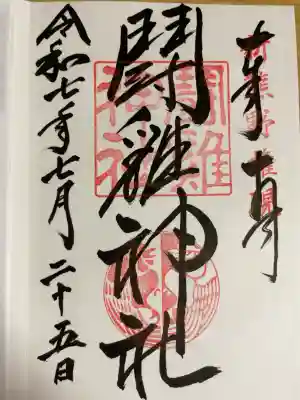 新熊野
鬪雞神社
鬪雞神社
令和七年七月二十五日